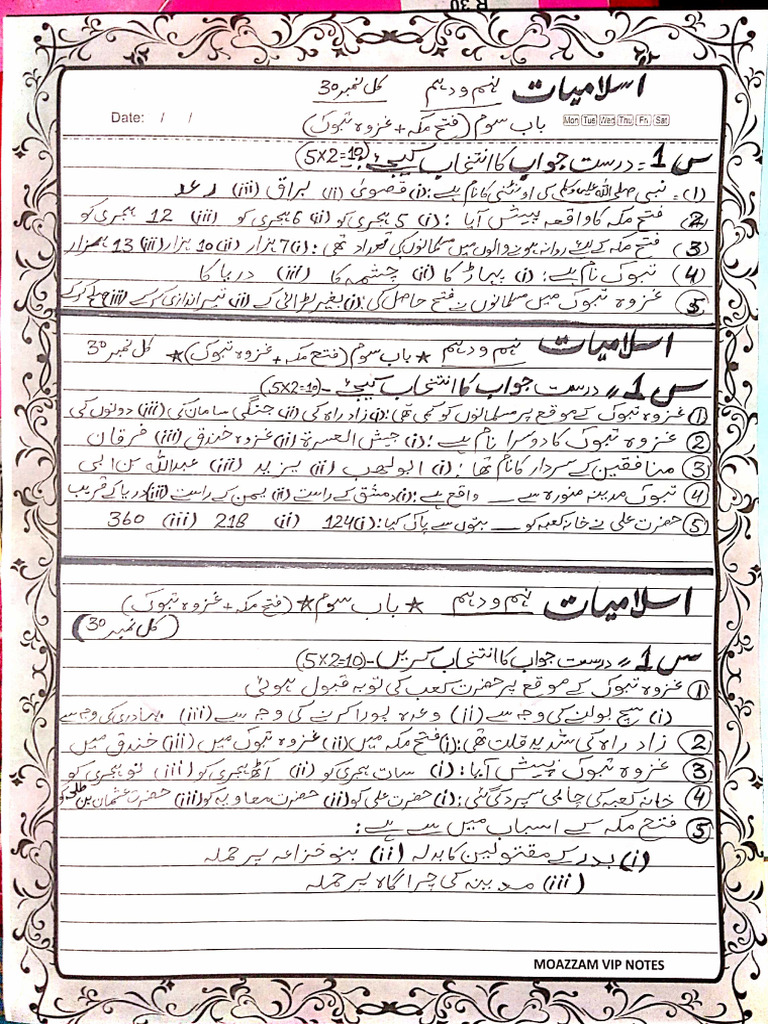 اسلامیات نہم و دہم کل نمبر 30
Date: / / باب سوم (فتح مکہ + غزوہ تبوک) Mon Tue Wed Thu Fri Sat
س 1 = درست جواب کا انتخاب کیجئے (5x2=10)
(1) = نبی صلی اللہ علیہ وسلم کی اونٹنی کا نام ہے: (i) قصویٰ (ii) براق (iii) رعد
(2) فتح مکہ کا واقعہ پیش آیا: (i) 5 ہجری کو (ii) 6 ہجری کو (iii) 12 ہجری کو
(3) فتح مکہ کے لئے روانہ ہونے والوں میں مسلمانوں کی تعداد تھی: (i) 7 ہزار (ii) 10 ہزار (iii) 13 ہزار
(4) تبوک نام ہے: (i) پہاڑ کا (ii) چشمہ کا (iii) دریا کا
(5) غزوہ تبوک میں مسلمانوں نے فتح حاصل کی: (i) بغیر لڑائی کے (ii) تیر اندازی کرکے (iii)
اسلامیات نہم و دہم ★ باب سوم (فتح مکہ + غزوہ تبوک) ★ کل نمبر 30
س 1 // درست جواب کا انتخاب کیجئے - (5x2=10)
(1) غزوہ تبوک کے موقع پر مسلمانوں کو کمی تھی: (i) زاد راہ کی (ii) جنگی سامان کی (iii) دونوں کی
(2) غزوہ تبوک کا دوسرا نام ہے: (i) جیش العسرۃ (ii) غزوہ خندق (iii) فرقان
(3) منافقین کے سردار کا نام تھا: (i) ابو لھب (ii) یزید (iii) عبداللہ بن ابی
(4) تبوک مدینہ منورہ سے ـــ واقع ہے: (i) دمشق کے راستے (ii) یمن کے راستے (iii) دریا کے قریب
(5) حضرت علی نے خانہ کعبہ کو ـــ بتوں سے پاک کیا: (i) 124 (ii) 218 (iii) 360
اسلامیات نہم و دہم ★ باب سوم ★ (فتح مکہ + غزوہ تبوک)
(کل نمبر 30)
س 1 // درست جواب کا انتخاب کریں - (5x2=10)
(1) غزوہ تبوک کے موقع پر حضرت کعب کی توبہ قبول ہوئی
(i) سچ بولنے کی وجہ سے (ii) وعدہ پورا کرنے کی وجہ سے (iii) بہادری کی وجہ سے
(2) زاد راہ کی شدید قلت تھی: (i) فتح مکہ میں (ii) غزوہ تبوک میں (iii) خندق میں
(3) غزوہ تبوک پیش آیا: (i) سات ہجری کو (ii) آٹھ ہجری کو (iii) نو ہجری کو
(4) خانہ کعبہ کی چابی سپرد کی گئی: (i) حضرت علی کو (ii) حضرت معاویہ کو (iii) حضرت عثمان بن طلحہ کو
(5) فتح مکہ کے اسباب میں سے ہے:
(i) بدر کے مقتولین کا بدلہ (ii) بنو خزاعہ پر حملہ
(iii) مدینہ کی چراگاہ پر حملہ
MOAZZAM VIP NOTES